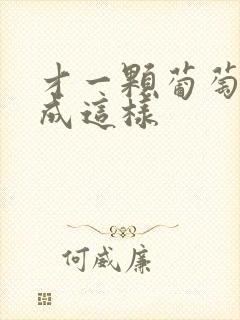 才一顆葡萄
成這樣
何威廉